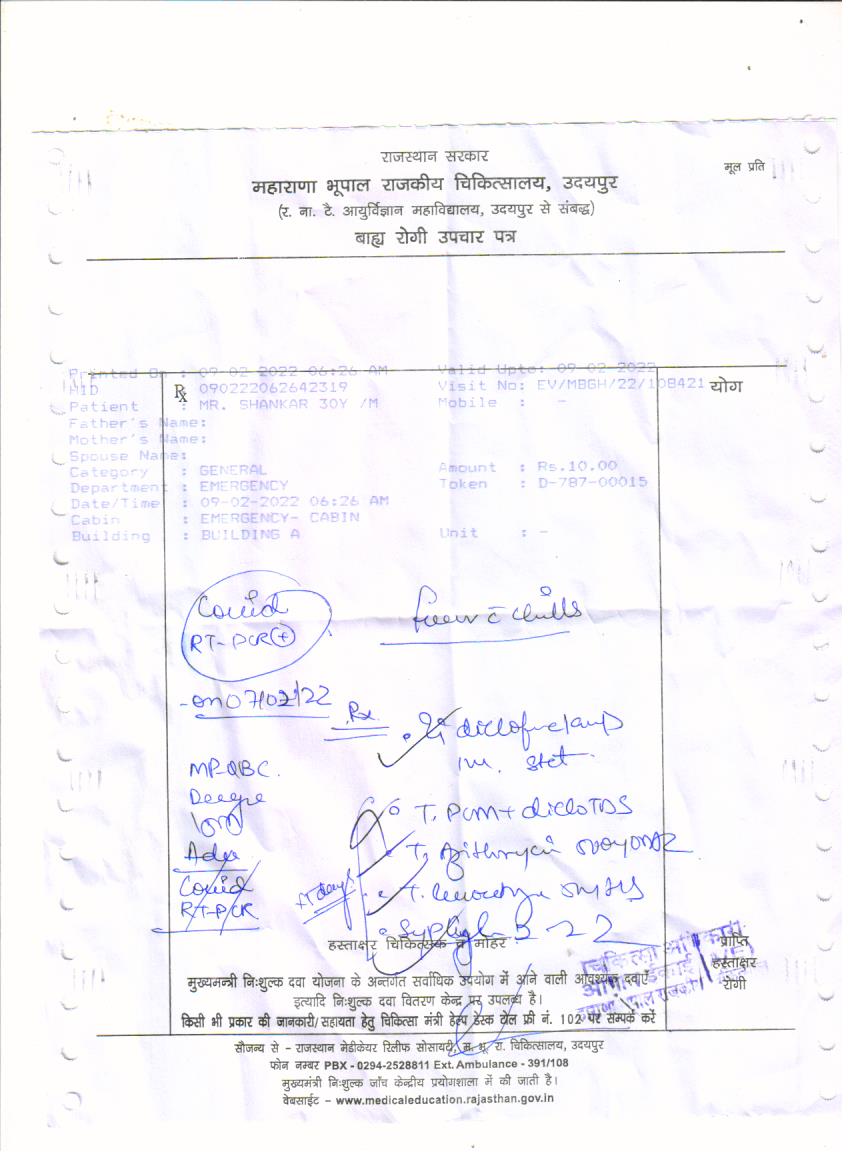 राजस्थान सरकार
मूल प्रति
महाराणा भूपाल राजकीय चिकित्सालय, उदयपुर
(र. ना. टै. आयुर्विज्ञान महाविद्यालय, उदयपुर से संबद्ध)
बाह्य रोगी उपचार पत्र
Printed On : 09-02-2022 06:26 AM Valid Upto: 09-02-2022
HID : 090222062642319 Visit No: EV/MBGH/22/108421
Rx
योग
Patient : MR. SHANKAR 30Y /M Mobile : -
Father's Name:
Mother's Name:
Spouse Name:
Category : GENERAL Amount : Rs.10.00
Department : EMERGENCY Token : D-787-00015
Date/Time : 09-02-2022 06:26 AM
Cabin : EMERGENCY- CABIN
Building : BUILDING A Unit : -
Covid
RT-PCR(+)
fever c̄ chills
-on 07/02/22
Rx
diclofenac/amp
im. stat
MP-QBC.
Dengue
T. PCM+ diclo TDS
Adv
T. Azithrycin
Covid
RT-PCR
हस्ताक्षर चिकित्सक व मोहर
प्राप्ति
हस्ताक्षर
रोगी
मुख्यमन्त्री निःशुल्क दवा योजना के अन्तर्गत सर्वाधिक उपयोग में आने वाली आवश्यक दवाएँ
इत्यादि निःशुल्क दवा वितरण केन्द्र पर उपलब्ध है।
किसी भी प्रकार की जानकारी/सहायता हेतु चिकित्सा मंत्री हेल्प डेस्क टोल फ्री नं. 102 पर सम्पर्क करें
सौजन्य से - राजस्थान मेडीकेयर रिलीफ सोसायटी, म. भू. रा. चिकित्सालय, उदयपुर
फोन नम्बर PBX - 0294-2528811 Ext. Ambulance - 391/108
मुख्यमंत्री निःशुल्क जाँच केन्द्रीय प्रयोगशाला में की जाती है।
वेबसाईट - www.medicaleducation.rajasthan.gov.in